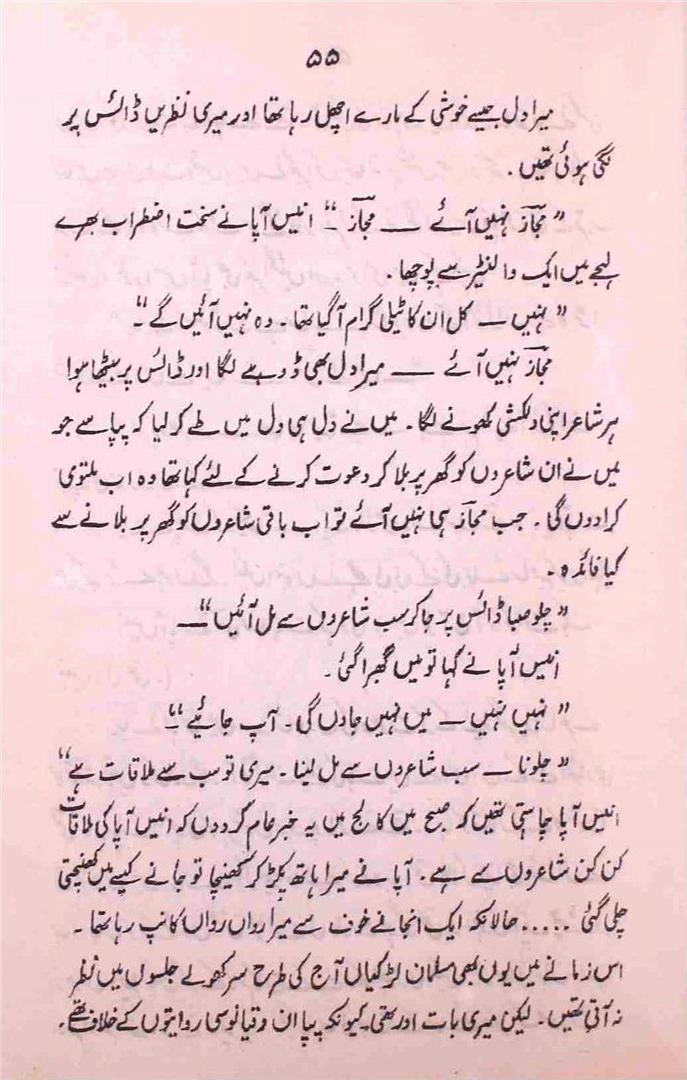 ۵۵
میرا دل جیسے خوشی کے مارے اچھل رہا تھا اور میری نظریں ڈائس پر
لگی ہوئی تھیں۔
”مجاز نہیں آئے — مجاز“ انیس آپا نے سخت اضطراب بھرے
لہجے میں ایک والنٹیر سے پوچھا۔
”نہیں — کل ان کا ٹیلی گرام آ گیا تھا۔ وہ نہیں آئیں گے“۔
مجاز نہیں آئے — میرا دل بھی ڈوبنے لگا اور ڈائس پر بیٹھا ہوا
ہر شاعر اپنی دلکشی کھونے لگا۔ میں نے دل ہی دل میں طے کر لیا کہ پپا سے جو
میں نے ان شاعروں کو گھر پر بلا کر دعوت کرنے کے لئے کہا تھا وہ اب ملتوی
کرا دوں گی۔ جب مجاز ہی نہیں آئے تو اب باقی شاعروں کو گھر پر بلانے سے
کیا فائدہ۔
”چلو صبا ڈائس پر جا کر سب شاعروں سے مل آئیں“—
انیس آپا نے کہا تو میں گھبرا گئی۔
”نہیں نہیں — میں نہیں جاوں گی۔ آپ جائیے“۔
”چلونا — سب شاعروں سے مل لینا۔ میری تو سب سے ملاقات ہے“
انیس آپا چاہتی تھیں کہ صبح میں کالج میں یہ خبر عام کر دوں کہ انیس آپا کی ملاقات
کن کن شاعروں سے ہے۔ آپا نے میرا ہاتھ پکڑ کر کھینچا تو جانے کیسے میں کھنچتی
چلی گئی ..... حالانکہ ایک انجانے خوف سے میرا رواں رواں کانپ رہا تھا۔
اس زمانے میں یوں بھی مسلمان لڑکیاں آج کی طرح سر کھولے جلسوں میں نظر
نہ آتی تھیں۔ لیکن میری بات اور تھی۔ کیونکہ پپا ان دقیانوسی روایتوں کے خلاف تھے۔